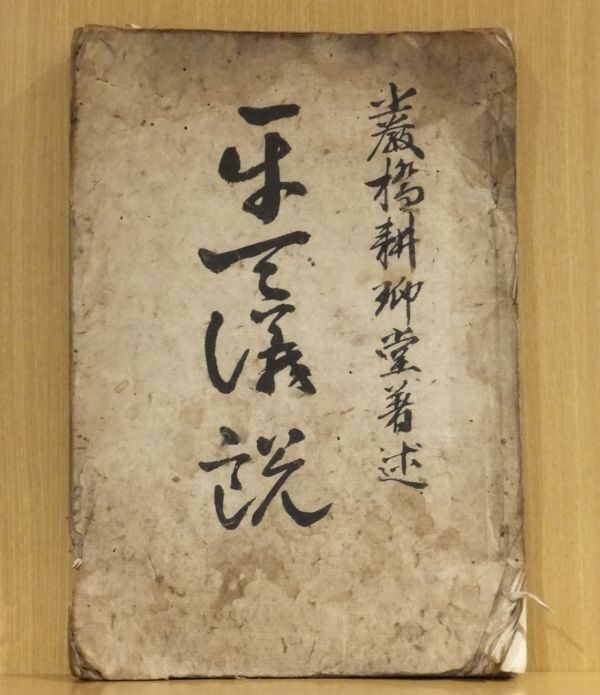 巖橋耕珋堂著述
平天儀説